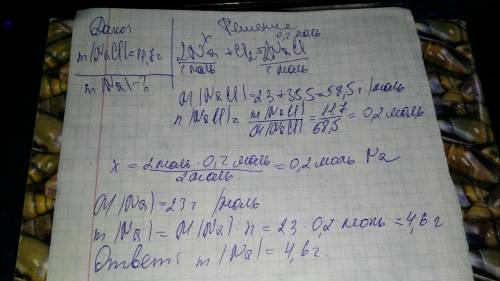 Дано: Решение
m(NaCl)=11,7г
m(Na)-?
x 0,2 моль
2Na + Cl₂ = 2NaCl
2 моль 2 моль
M(NaCl)=23+35,5=58,5 г/моль
n(NaCl)= m(NaCl)/M(NaCl) = 11,7/58,5 = 0,2 моль
x = 2 моль · 0,2 моль / 2 моль = 0,2 моль Na
M(Na)=23 г/моль
m(Na)= M(Na)· n = 23 0,2 моль = 4,6 г
Ответ: m(Na)= 4,6 г.